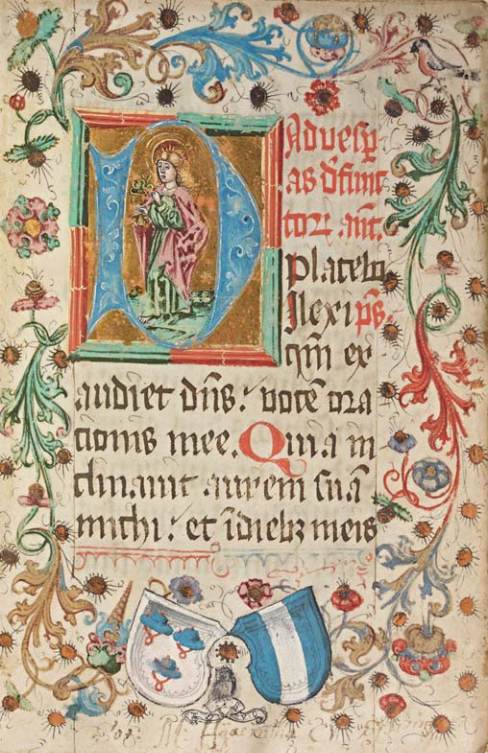 Ad vesꝑ
as dēfunc
torꝝ . an̄t.
Placebo
Dilexi ps̄.
qm̄ ex
audiet dn̄s: vocē ora
cionis mee. Quia in
clinavit aurem suā
michi: et ī diebꝫ meis